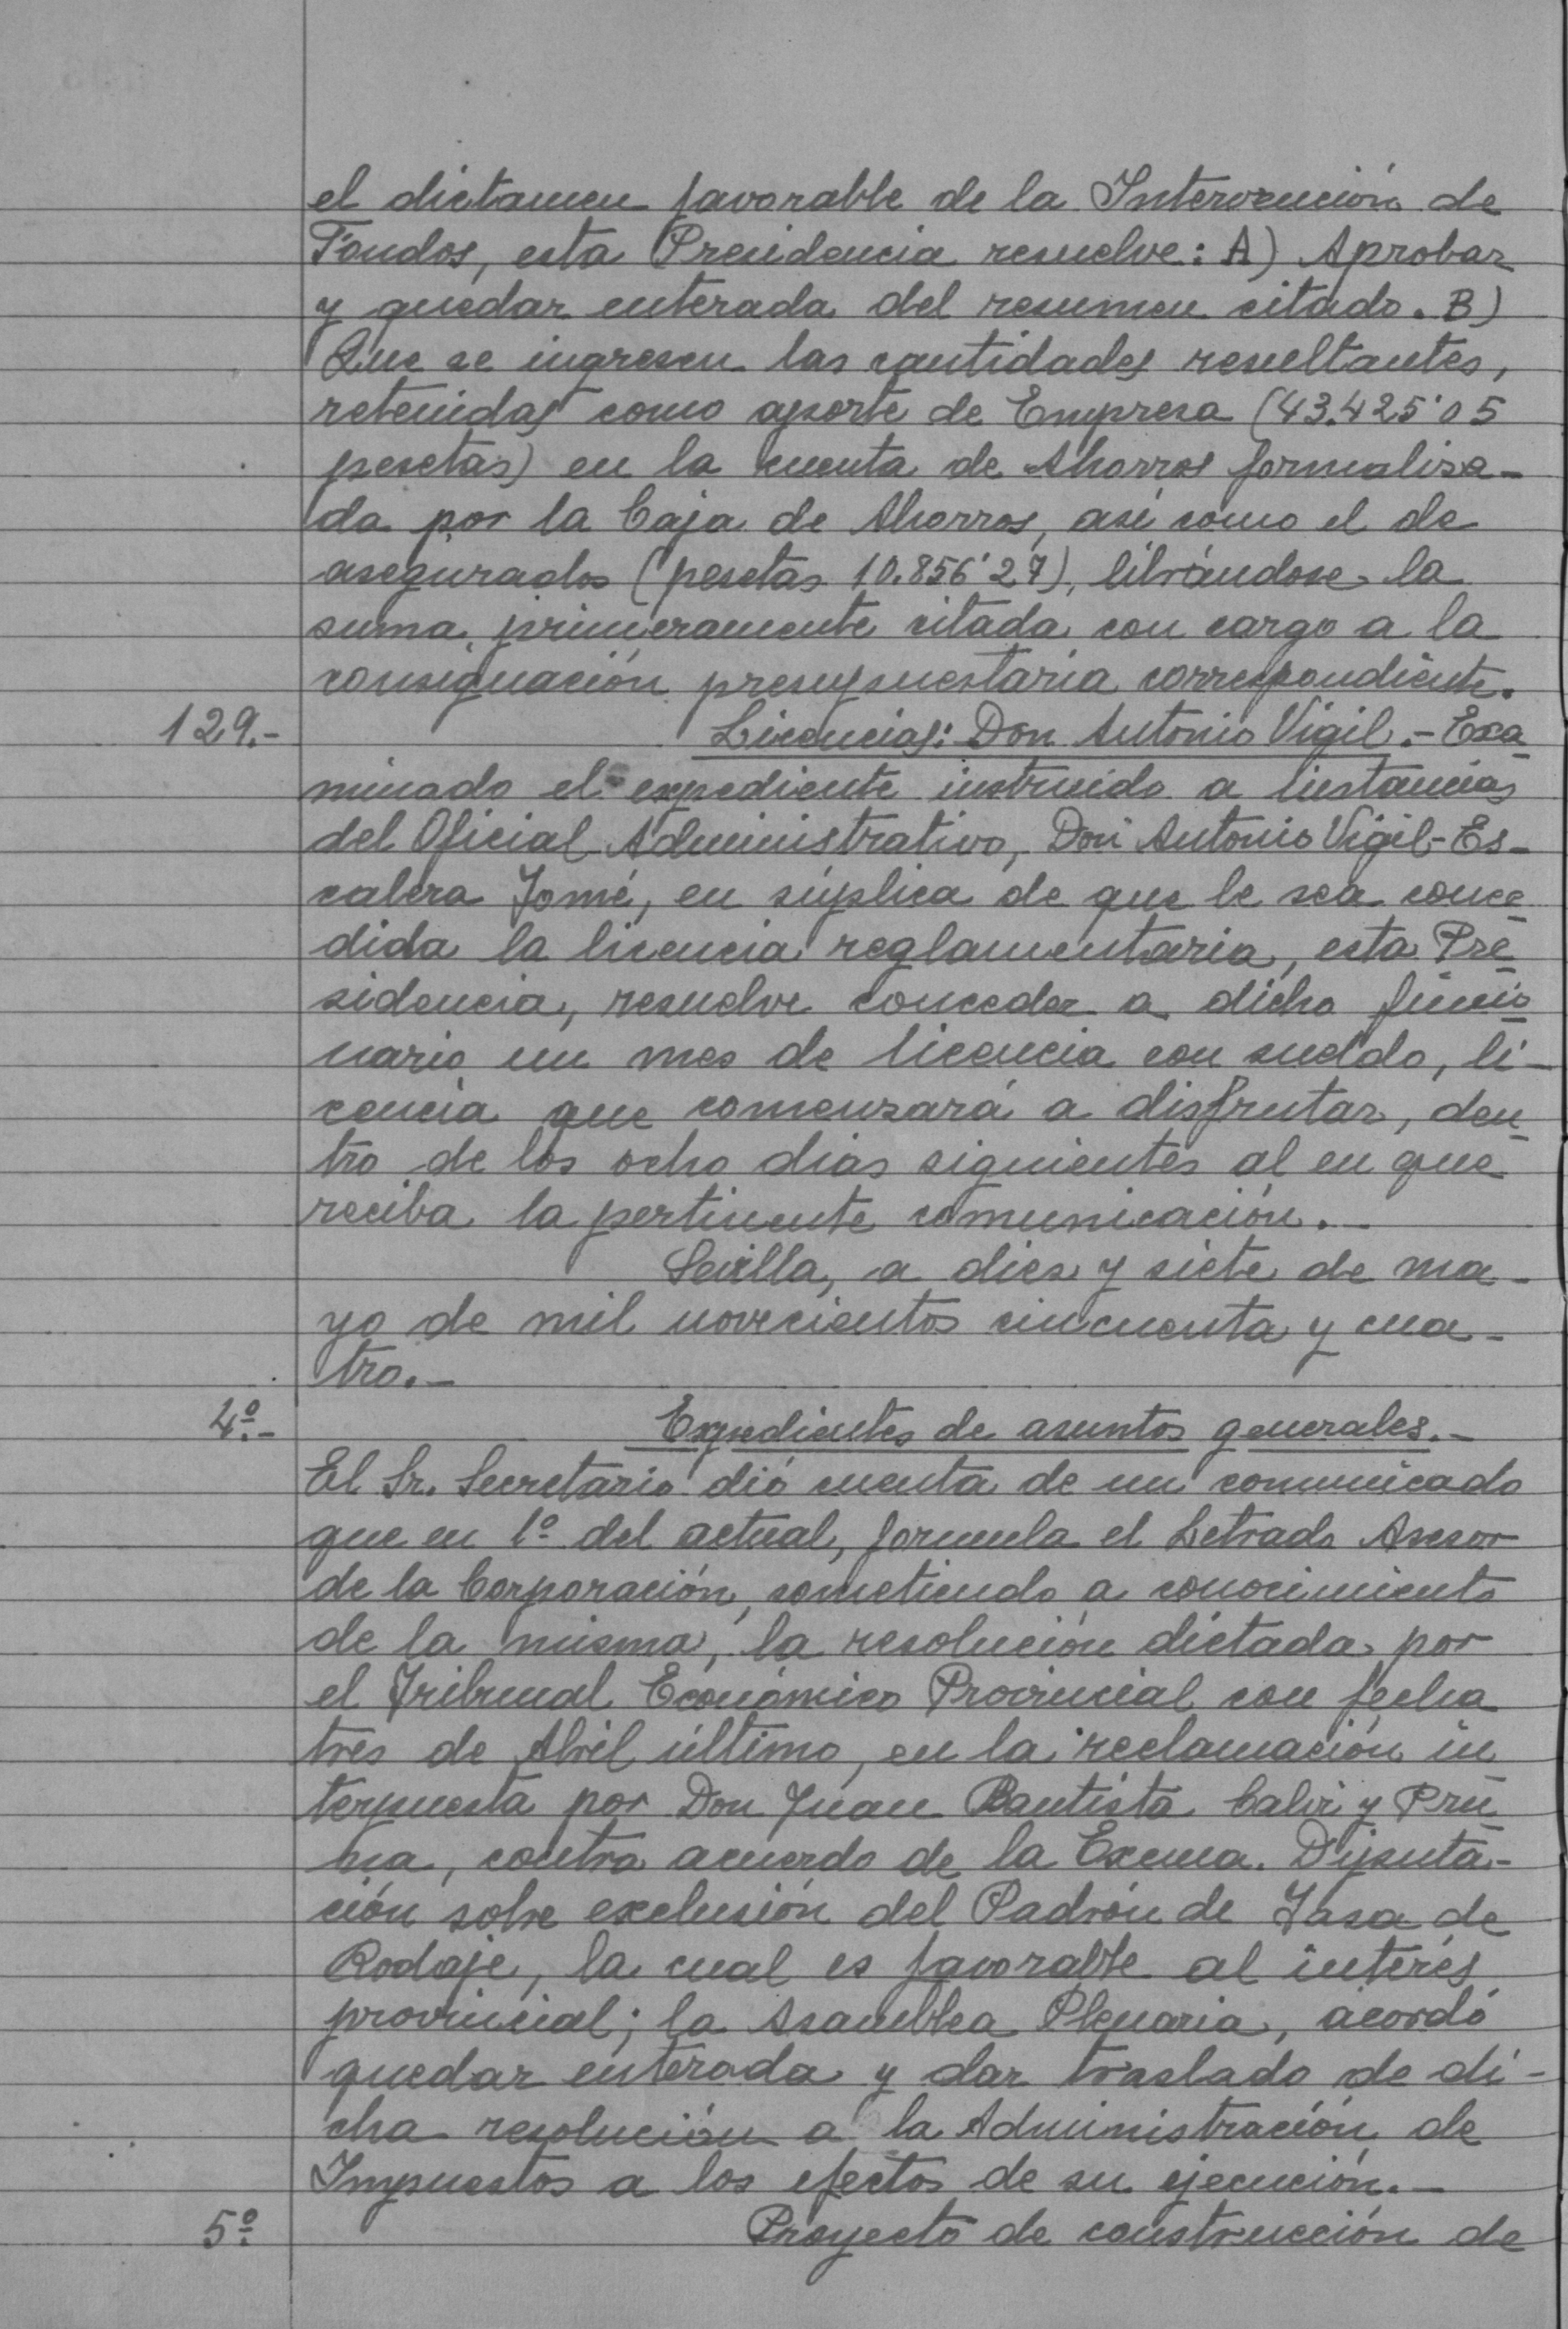 el dictamen favorable de la Intervención de
Fondos, esta Presidencia resuelve: A) Aprobar
y quedar enterada del resumen citado. B)
Que se ingresen las cantidades resultantes,
retenidas como aporte de Empresa (43.425'05
pesetas) en la cuenta de Ahorros formaliza-
da por la Caja de Ahorros, así como el de
asegurados (pesetas 10.856'27), librándose la
suma primeramente citada con cargo a la
consignación presupuestaria correspondiente.
129.- Licencias: Don Antonio Vigil.- Exa-
minado el expediente instruido a instancias
del Oficial Administrativo, Don Antonio Vigil-Es-
calera Tomé, en súplica de que le sea conce-
dida la licencia reglamentaria, esta Pre-
sidencia, resuelve conceder a dicho funcio-
nario un mes de licencia con sueldo, li-
cencia que comenzará a disfrutar, den-
tro de los ocho dias siguientes al en que
reciba la pertinente comunicación.-
Sevilla, a diez y siete de ma-
yo de mil novecientos cincuenta y cua-
tro.-
4º.- Expedientes de asuntos generales.-
El Sr. Secretario dió cuenta de un comunicado
que en 1º del actual, formula el Letrado Asesor
de la Corporación, sometiendo a conocimiento
de la misma, la resolución dictada por
el Tribunal Económico Provincial con fecha
tres de Abril último, en la reclamación in-
terpuesta por Don Juan Bautista Calvi y Pru-
na, contra acuerdo de la Excma. Diputa-
ción sobre exclusión del Padrón de Tasa de
Rodaje, la cual es favorable al interés
provincial; la Asamblea Plenaria, acordó
quedar enterada y dar traslado de di-
cha resolución a la Administración de
Impuestos a los efectos de su ejecución.-
5º Proyecto de construcción de